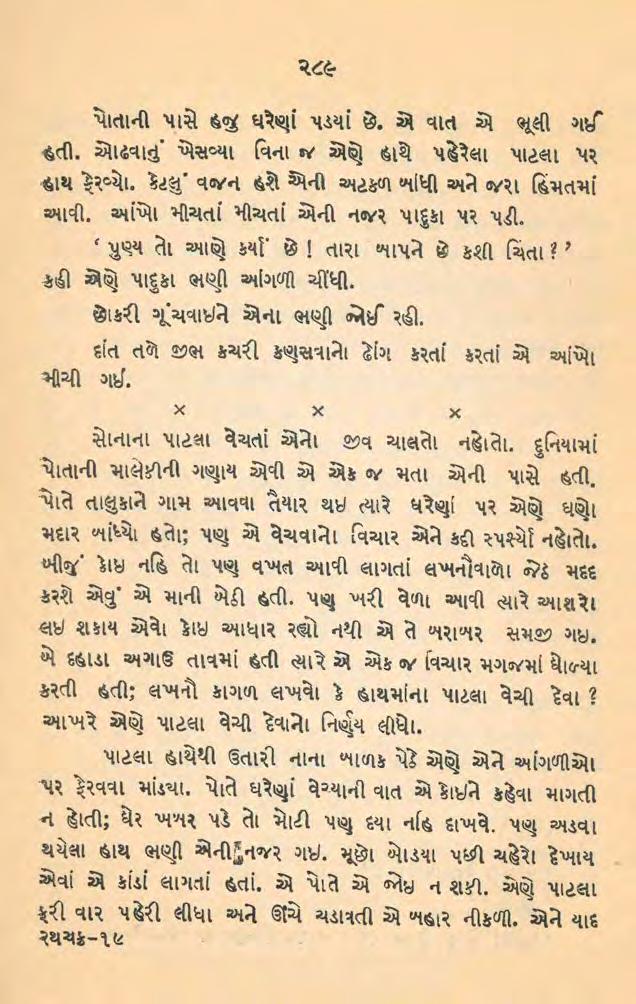 ૨૮૯
પોતાની પાસે હજુ ઘરેણાં પડયાં છે. એ વાત એ ભૂલી ગઈ
હતી. ઓઢવાનું ખેસવ્યા વિના જ એણે હાથે પહેરેલા પાટલા પર
હાથ ફેરવ્યો. કેટલું વજન હશે એની અટકળ બાંધી અને જરા હિંમતમાં
આવી. આંખો મીચતાં મીચતાં એની નજર પાદુકા પર પડી.
‘ પુણ્ય તો આણે કર્યાં છે ! તારા બાપને છે કશી ચિંતા ? ’
કહી એણે પાદુકા ભણી આંગળી ચીંધી.
છોકરી ગૂંચવાઇને એના ભણી જોઈ રહી.
દાંત તળે જીભ કચરી કણુસવાનો ઢોંગ કરતાં કરતાં એ આંખો
મીચી ગઈ.
× × ×
સોનાના પાટલા વેચતાં એનો જીવ ચાલતો નહોતો. દુનિયામાં
પોતાની માલેકીની ગણાય એવી એ એક જ મતા એની પાસે હતી.
પોતે તાલુકાને ગામ આવવા તૈયાર થઇ ત્યારે ઘરેણાં પર એણે ઘણો
મદાર બાંધ્યો હતો; પણ એ વેચવાનો વિચાર એને કદી સ્પર્શ્યો નહોતો.
બીજું કોઇ નહિ તો પણ વખત આવી લાગતાં લખનૌવાળો જેઠ મદદ
કરશે એવું એ માની બેઠી હતી. પણ ખરી વેળા આવી ત્યારે આશરો
લઇ શકાય એવો કોઇ આધાર રહ્યો નથી એ તે બરાબર સમજી ગઇ.
બે દહાડા અગાઉ તાવમાં હતી ત્યારે એ એક જ વિચાર મગજમાં ઘોળ્યા
કરતી હતી; લખનૌ કાગળ લખવો કે હાથમાંના પાટલા વેચી દેવા ?
આખરે એણે પાટલા વેચી દેવાનો નિર્ણય લીધો.
પાટલા હાથેથી ઉતારી નાના બાળક પેઠે એણે એને આંગળીઓ
પર ફેરવવા માંડયા. પોતે ઘરેણાં વેચ્યાની વાત એ કોઇને કહેવા માગતી
ન હોતી; ઘેર ખબર પડે તો મોટી પણ દયા નહિ દાખવે. પણ અડવા
થયેલા હાથ ભણી એની નજર ગઇ. મૂછો બોડયા પછી ચહેરો દેખાય
એવાં એ કાંડાં લાગતાં હતાં. એ પોતે એ જોઇ ન શકી. એણે પાટલા
ફરી વાર પહેરી લીધા અને ઊંચે ચડાવતી એ બહાર નીકળી. એને યાદ
રથચક્ર–૧૯